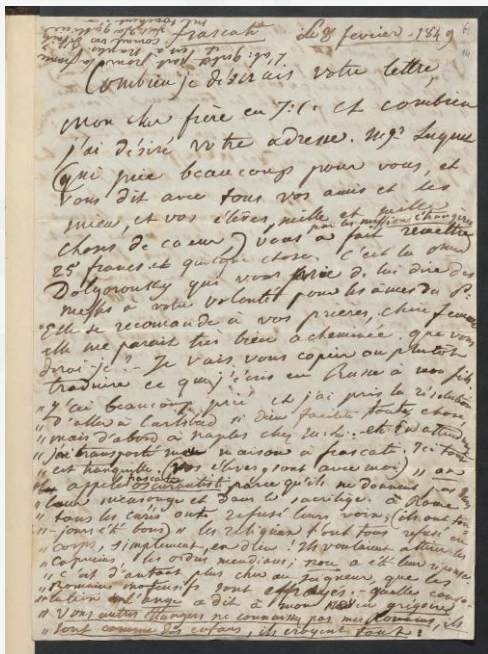 frascati Le 28 fevrier. 1849
Combien je désirais votre lettre,
mon cher frère en J: C: et combien
j'ai désiré votre adresse. Mgr. Luquet
(qui prie beaucoup pour vous, et
vous dit avec tous vos amis et les
miens, et vos élèves, mille et mille
par les mission étrangères
choses de coeur) vous a fait remettre
25 francs et quelque chose. C'est la
Dolgorousky qui vous prie de lui dire des
messes à votre volonté pour les âmes du P.
Elle se recomande à vos prières, chere femme
elle me parait très bien acheminée. que vous
dirai je? - Je vais vous copier ou plutôt
traduire ce que j'écris en Russe à mon fils,
"J'ai beaucoup prié et j'ai pris la résolution
"d'aller à Carlsbad si dieu facilite toutes choses
"mais d'abord à naples chez et en attendant
"j'ai transporté ma maison à frascati. Ici tout
"est tranquille (vos élèves sont avec moi) " on
appelle frascati oscurantisti parce qu'ils ne donnent
dans mensonge et dans le sacrilege. à Rome
"tous les curés onts refusé leur voix, (ils ont
"- jours été bons) " les religieux l'ont tous refusé en
"corps, simplement, en dieu! Ils voulaient attirer les
"Capucins les ordres mendians; non a été leur réponse
"C'est d'autant plus cher au Seigneur, que les
"Romains inofensifs sont effrayés. - quelle conso-
"lation un ange a dit à mon gregoire
"Vous autres étrangers ne connaissez pas mes Romains, ils
"sont comme des enfans, ils croyent tout!